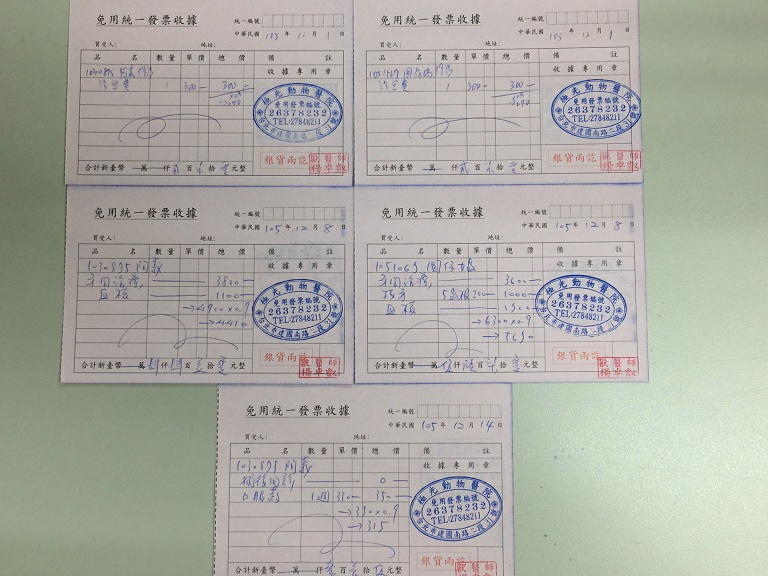 免用統一發票收據
統一編號
中華民國 105 年 11 月 1 日
買受人： 地址：
品 名 數量 單價 總價 備 註
收據專用章
1 300 300
極光動物醫院
免用發票編號
26378232
TEL:27848211
台北市建國南路二段
銀貨兩訖
獸醫師
合計新臺幣 萬 仟 貳 百 柒 拾 零 元整
免用統一發票收據
統一編號
中華民國 105 年 12 月 1 日
買受人： 地址：
品 名 數量 單價 總價 備 註
收據專用章
1 300 300
極光動物醫院
免用發票編號
26378232
TEL:27848211
台北市建國南路二段
銀貨兩訖
獸醫師
合計新臺幣 萬 仟 貳 百 柒 拾 零 元整
免用統一發票收據
統一編號
中華民國 105 年 12 月 8 日
買受人： 地址：
品 名 數量 單價 總價 備 註
1030895 收據專用章
牙周治療, 3800
血檢 1100
→4900×0.9
→4410
極光動物醫院
免用發票編號
26378232
TEL:27848211
台北市建國南路二段
銀貨兩訖
獸醫師
合計新臺幣 萬 肆 仟 肆 百 壹 拾 零 元整
免用統一發票收據
統一編號
中華民國 105 年 12 月 8 日
買受人： 地址：
品 名 數量 單價 總價 備 註
收據專用章
牙周治療, 3600
拔牙 5 200 1000
血檢
→6300×0.9
極光動物醫院
免用發票編號
26378232
TEL:27848211
台北市建國南路二段
銀貨兩訖
獸醫師
合計新臺幣 萬 伍 仟 陸 百 柒 拾 零 元整
免用統一發票收據
統一編號
中華民國 105 年 12 月 14 日
買受人： 地址：
品 名 數量 單價 總價 備 註
1030895 收據專用章
0
口服藥 1週 350 350
→350×0.9
→315
極光動物醫院
免用發票編號
26378232
TEL:27848211
台北市建國南路二段
銀貨兩訖
獸醫師
合計新臺幣 萬 仟 叁 百 壹 拾 伍 元整